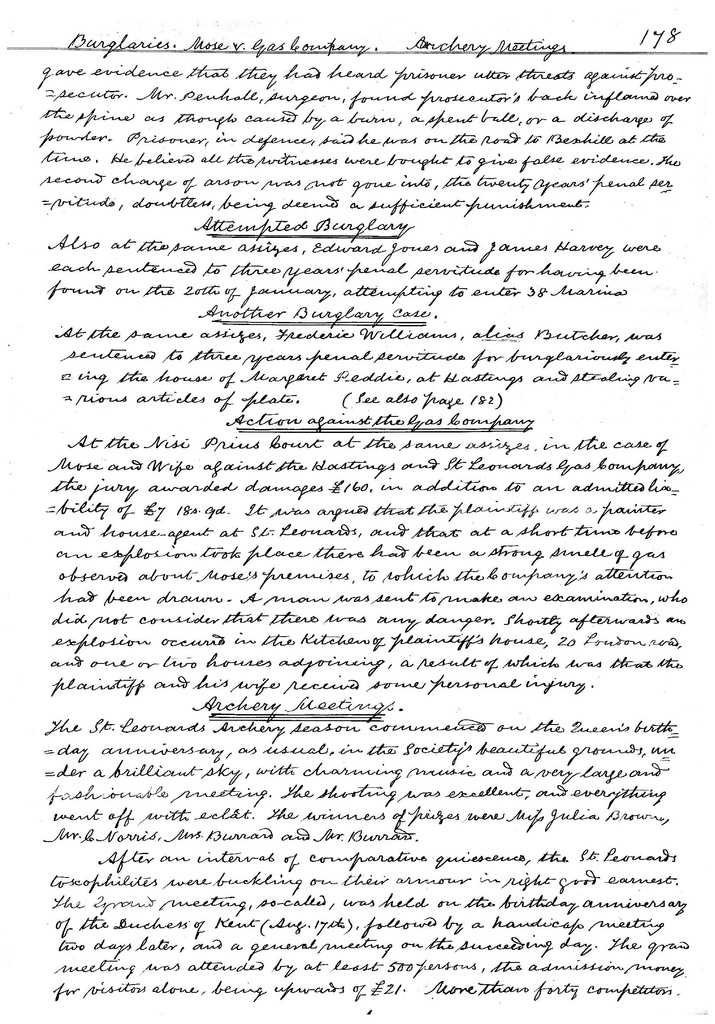 Burglaries. Mose v. Gas Company. Archery Meetings 178
gave evidence that they had heard prisoner utter threats against pro=
=secutor. Mr. Penhall, surgeon, found prosecutor's back inflamed over
the spine as though caused by a burn, a spent ball, or a discharge of
powder. Prisoner, in defence, said he was on the road to Bexhill at the
time. He believed all the witnesses were bought to give false evidence. The
second charge of arson was not gone into, the twenty years' penal ser=
=vitude, doubtless, being deemed a sufficient punishment.
Attempted Burglary
Also at the same assizes, Edward Jones and James Harvey were
each sentenced to three years' penal servitude for having been
found on the 20th of January, attempting to enter 38 Marina
Another Burglary Case.
At the same assizes, Frederic Williams, alias Butcher, was
sentenced to three years penal servitude for burglariously enter=
=ing the house of Margaret Peddie, at Hastings and stealing va=
=rious articles of plate. (See also page 182)
Action against the Gas Company
At the Nisi Prius Court at the same assizes, in the case of
Mose and Wife against the Hastings and St Leonards Gas Company,
the jury awarded damages £160, in addition to an admitted lia=
=bility of £7 18s. 9d. It was argued that the plaintiff was a painter
and house-agent at St. Leonards, and that at a short time before
an explosion took place there had been a strong smell of gas
observed about Mose's premises, to which the Company's attention
had been drawn. A man was sent to make an examination, who
did not consider that there was any danger. Shortly afterwards an
explosion occured in the Kitchen of plaintiff's house, 20 London road,
and one or two houses adjoining, a result of which was that the
plaintiff and his wife received some personal injury.
Archery Meetings.
The St. Leonards Archery season commenced on the Queen's birth=
=day anniversary, as usual, in the Society's beautiful grounds, un
=der a brilliant sky, with charming music and a very large and
fashionable meeting. The shooting was excellent, and everything
went off with eclât. The winners of prizes were Miss Julia Brown,
Mr. C Norris, Mrs. Burrard and Mr. Burrard.
After an interval of comparative quiescence, the St. Leonards
toxophilites were buckling on their armour in right good earnest.
The "grand meeting, so-called, was held on the birthday anniversary
of the Duchess of Kent (Aug. 17th), followed by a handicap meeting
two days later, and a general meeting on the succeeding day. The grand
meeting was attended by at least 500 persons, the admission money
for visitors alone, being upwards of £21. More than forty competitors.